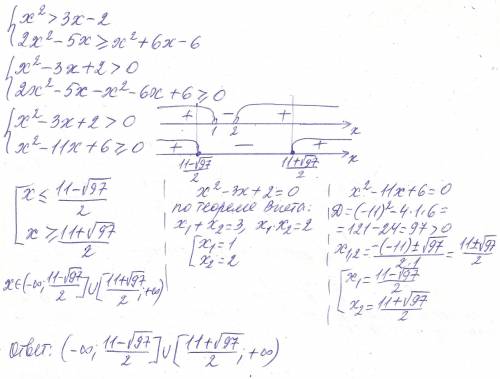 {x²>3x-2
{2x²-5x≥x²+6x-6
{x²-3x+2>0
{2x²-5x-x²-6x+6≥0
{x²-3x+2>0
{x²-11x+6≥0
+ - +
1 2 x
+ - +
(11-√97)/2 (11+√97)/2 x
[x≤(11-√97)/2
[x≥(11+√97)/2
x∈(-∞;(11-√97)/2]∪[(11+√97)/2;+∞)
x²-3x+2=0
по теореме Виета:
x₁+x₂=3, x₁·x₂=2
[x₁=1
[x₂=2
x²-11x+6=0
Д=(-11)²-4·1·6=
=121-24=97>0
x₁,₂=(-(-11)±√97)/(2·1)=(11±√97)/2
[x₁=(11-√97)/2
[x₂=(11+√97)/2
Ответ: (-∞;(11-√97)/2]∪[(11+√97)/2;+∞)